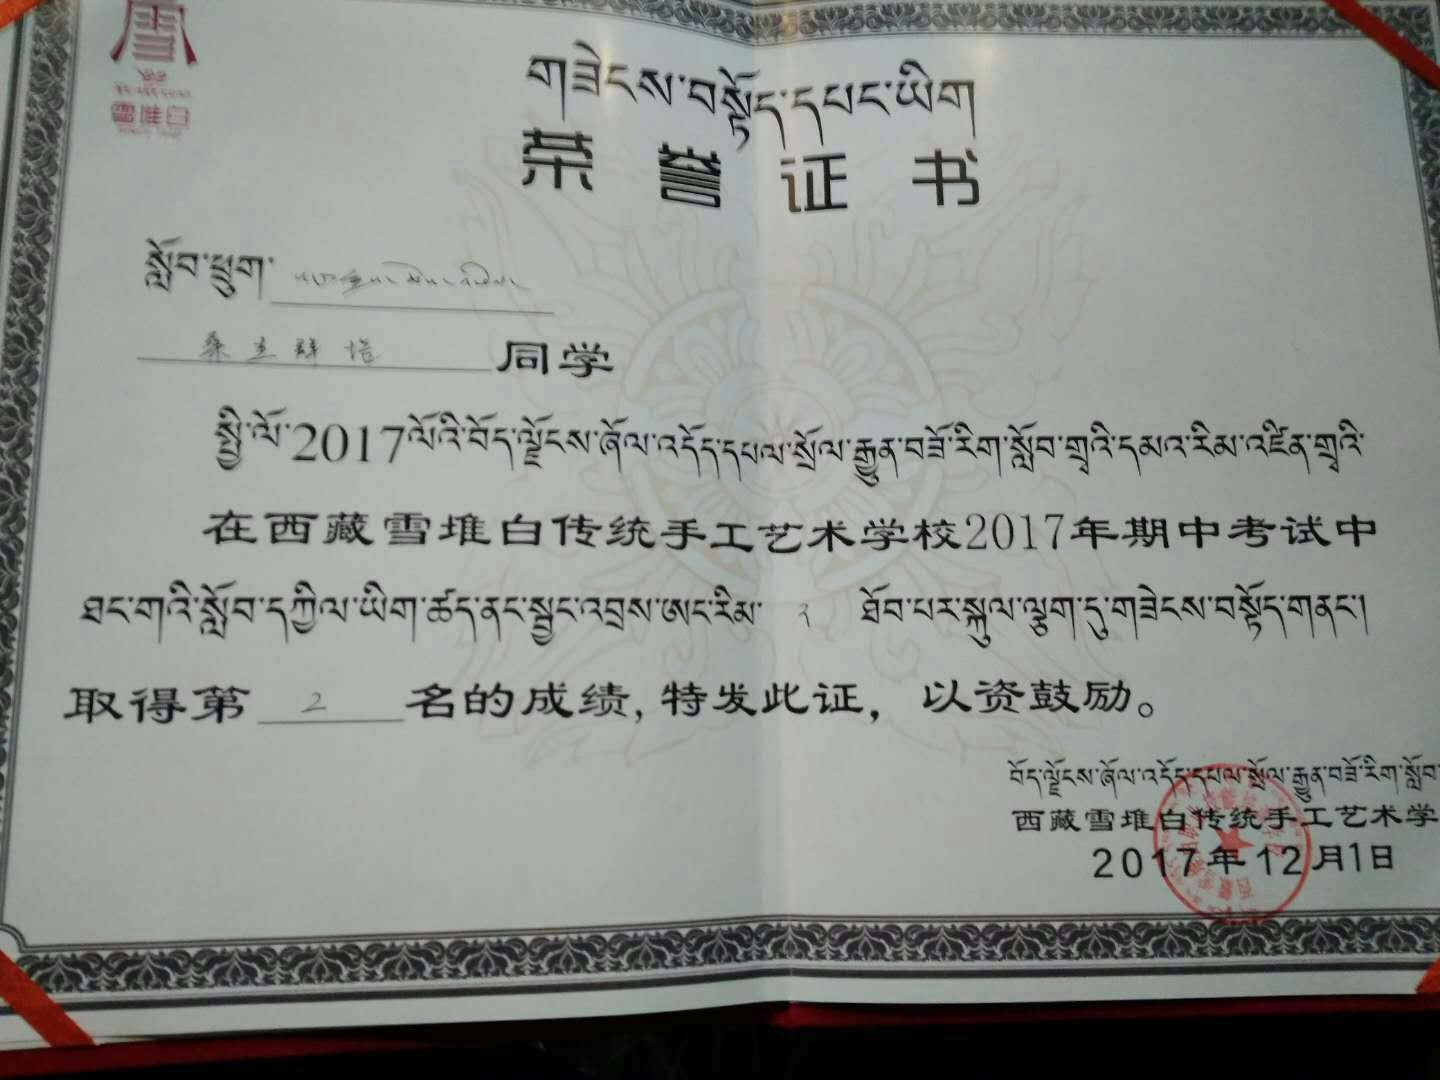 雪堆白
གཟེངས་བསྟོད་དཔང་ཡིག
荣誉证书
སློབ་ཕྲུག་
桑杰群培 同学
སྤྱི་ལོ་2017ལོའི་བོད་ལྗོངས་ཞོལ་འདོད་དཔལ་སྲོལ་རྒྱུན་བཟོ་རིག་སློབ་གྲྭའི་དམའ་རིམ་འཛིན་གྲྭའི་
在西藏雪堆白传统手工艺术学校2017年期中考试中
ཐང་གའི་སློབ་དཀྱིལ་ཡིག་ཚད་ནང་སྦྱང་འབྲས་ཨང་རིམ་ 2 ཐོབ་པར་སྐུལ་ལྕག་ཏུ་གཟེངས་བསྟོད་གནང་།
取得第 2 名的成绩,特发此证，以资鼓励。
བོད་ལྗོངས་ཞོལ་འདོད་དཔལ་སྲོལ་རྒྱུན་བཟོ་རིག་སློབ་
西藏雪堆白传统手工艺术学
2017年12月1日